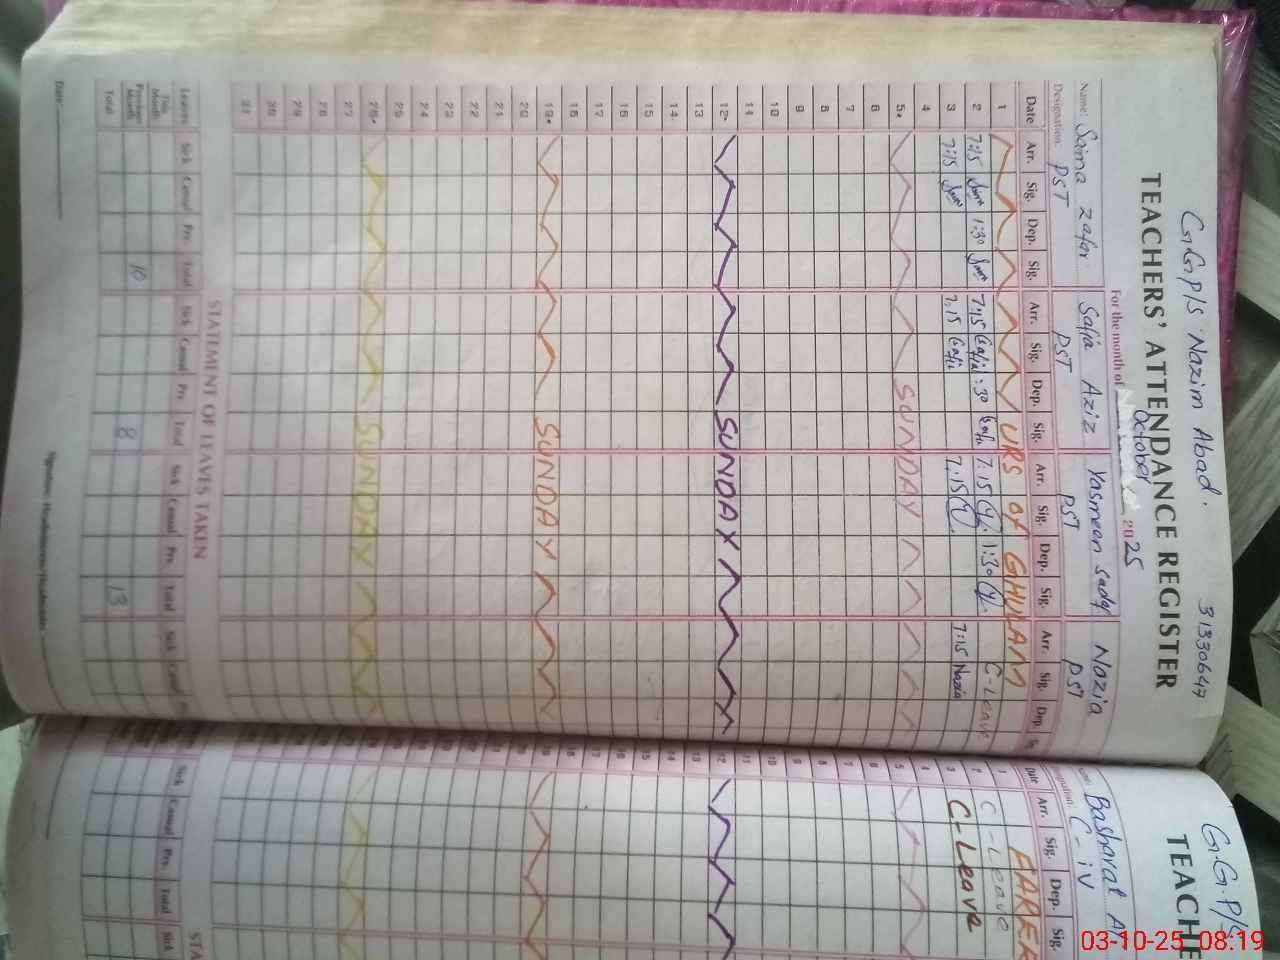 G.G.P/S Nazim Abad.
31330647
TEACHERS' ATTENDANCE REGISTER
For the month of October 2025
Name: Saima Zafar Safia Aziz Yasmeen Sadiq Nazia
Designation: PST PST PST PST
Date Arr. Sig. Dep. Sig. Arr. Sig. Dep. Sig. Arr. Sig. Dep. Sig. Arr. Sig. Dep
1 URS OF GHULAM
2 7:15 1:30 7:15 Safia 1:30 Safi 7:15 1:30 C-Leave
3 7:15 7:15 Safi 7:15 7:15 Nazia
4
5 SUNDAY
6
7
8
9
10
11
12 SUNDAY
13
14
15
16
17
18
19 SUNDAY
20
21
22
23
24
25
26 SUNDAY
27
28
29
30
31
STATEMENT OF LEAVES TAKEN
Leaves Sick Casual Prv. Total Sick Casual Prv. Total Sick Casual Prv. Total Sick Casual
This Month
Previous Month 10 8 13
Total
Date:
G.G.P/S
TEACHE
Name: Basharat
Designation: C-iv
Date Arr. Sig. Dep. Sig.
1 FAREE
2 C-Leave
3 C-Leave
4
5
6
7
8
9
10
11
12
13
14
15
16
17
18
19
20
21
22
23
24
25
Sick Casual Prv. Total Sick
STA
03-10-25 08:19